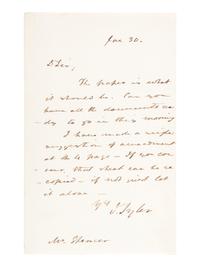 Jan 30.
D Sir,
The paper is what
it should be. Can you
have all the documents rea-
-dy to go in this morning
I have made a single
suggestion of amendment
at the 4 page - If you con-
cur, that sheet can be re-
copied - if not just let
it alone -
Yrs J. Tyler
Mr Spencer